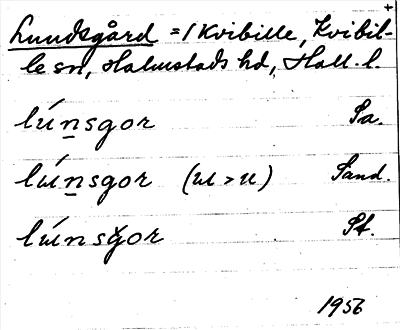 +
Lundsgård = 1 Kvibille, Kvibil-
le sn, Halmstads hd, Hall. l.
lúnsgor Sa.
lɯ́nsgor (ɯ > u) Sand.
lɯ́nsgor St.
1956